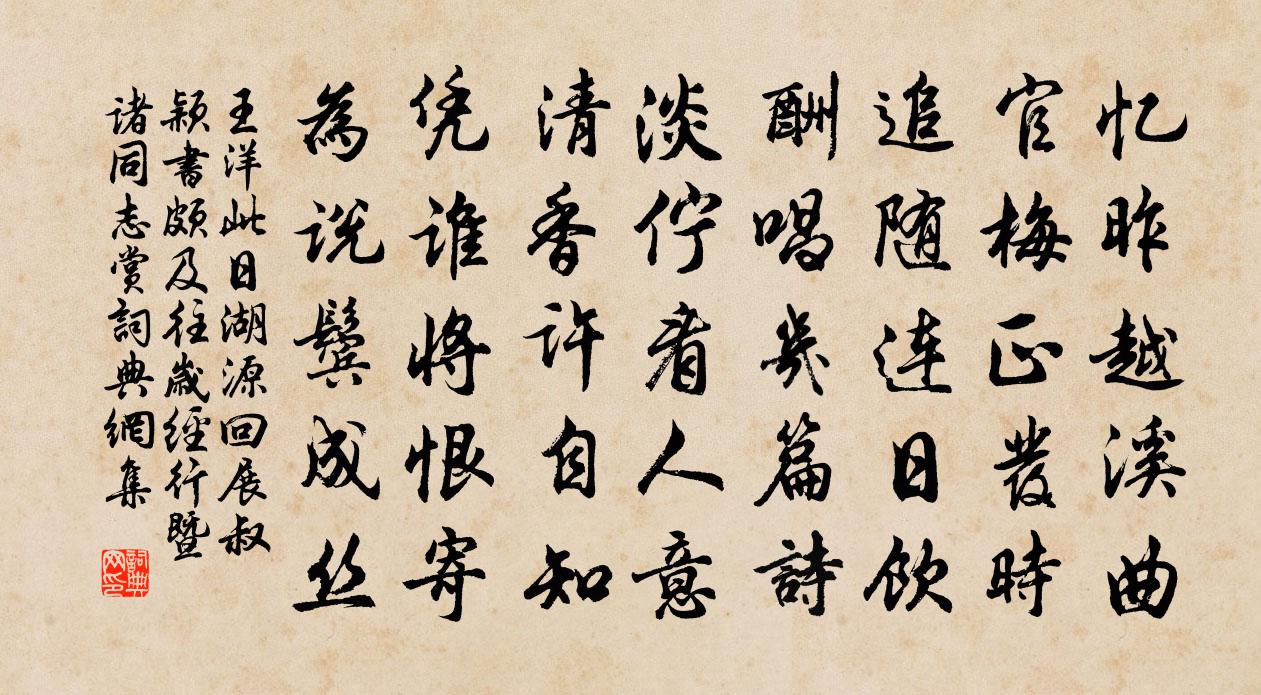 忆昨越溪曲
官梅正發時
追随连日饮
酬唱幾篇詩
淡佇看人意
清香许自知
凭谁将恨寄
為说鬓成丝
王洋此日湖源回展叔
颖書頗及往歲經行暨
诸同志赏詞典網集
詞典网印